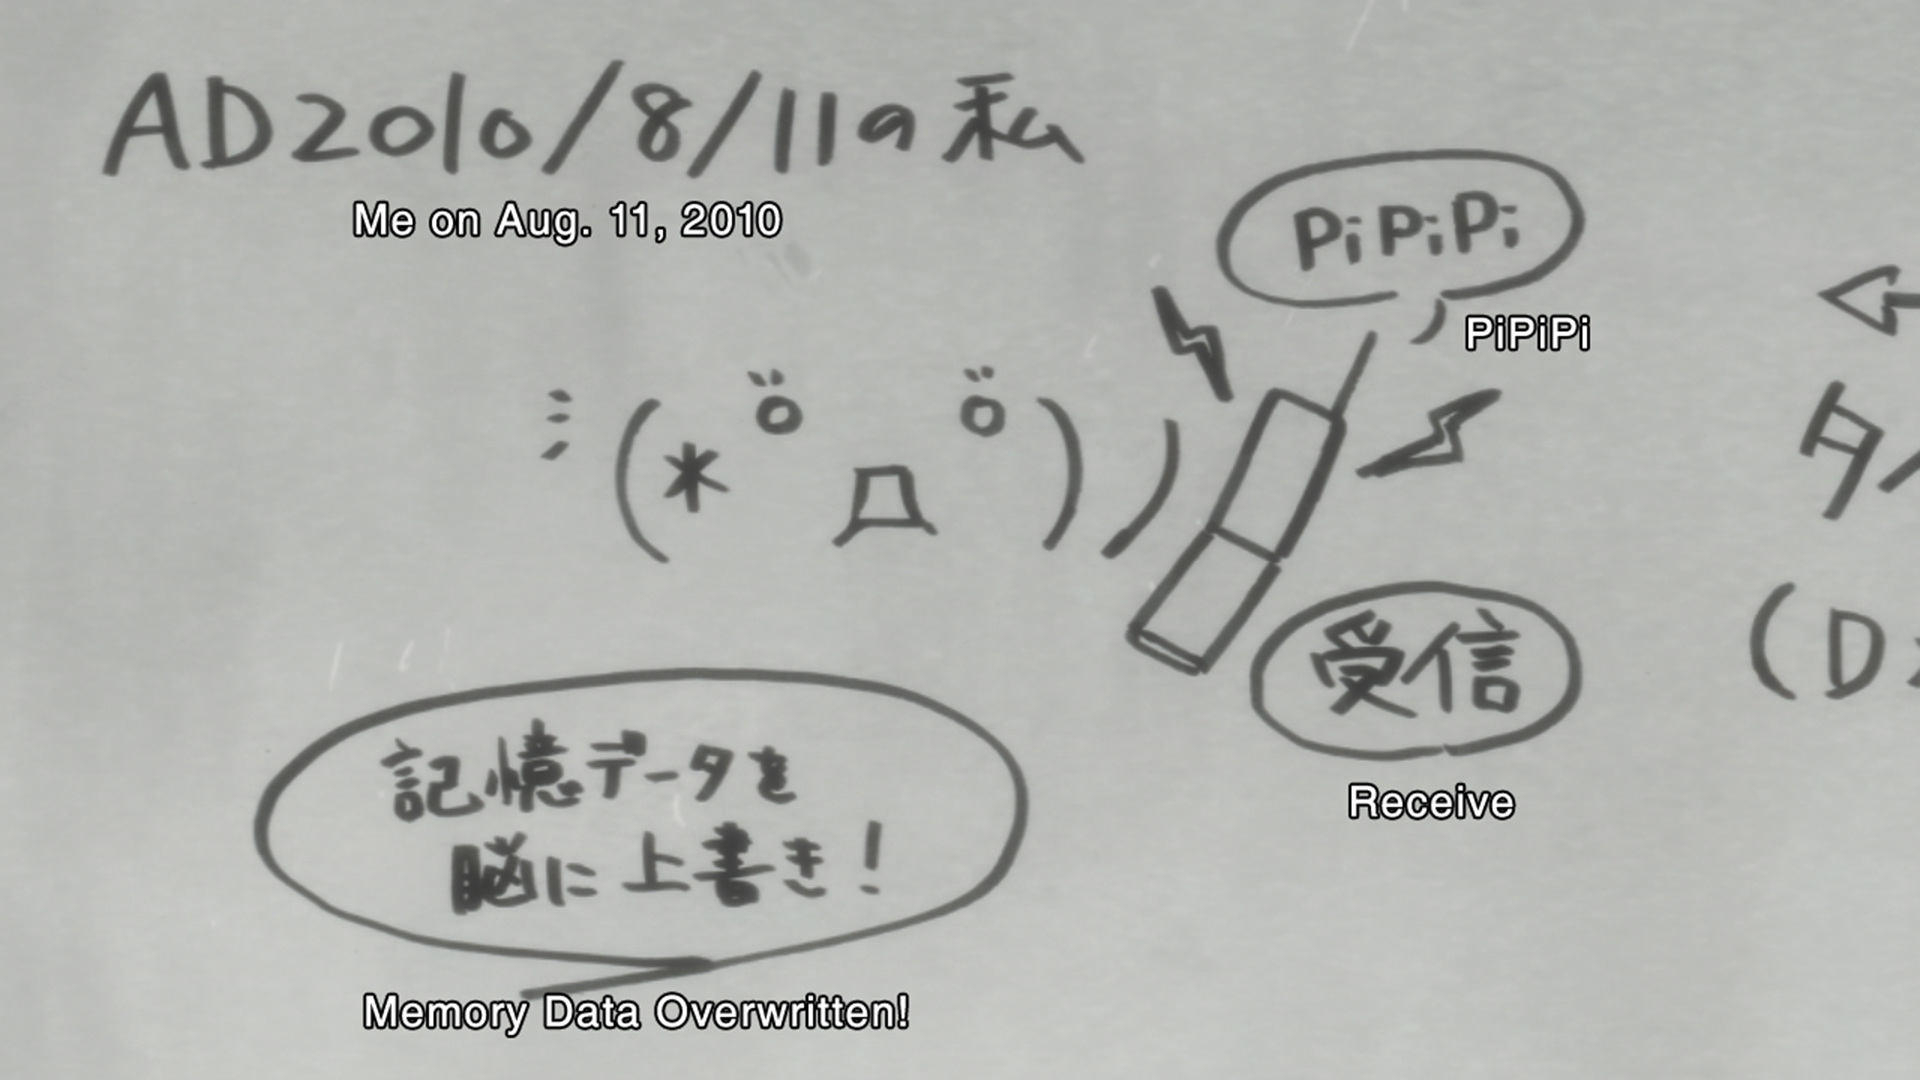 AD2010/8/11の私
Me on Aug. 11, 2010
PiPiPi
PiPiPi
(* ö 口 ö ))
受信
Receive
タイ
(D
記憶データを
脳に上書き!
Memory Data Overwritten!